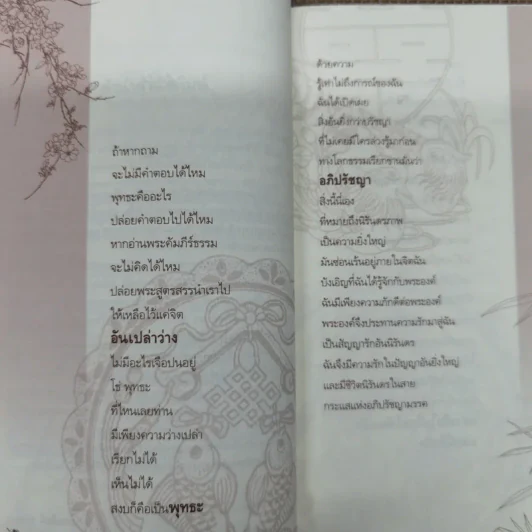 ถ้าหากถาม
จะไม่มีคำตอบได้ไหม
พุทธะคืออะไร
ปล่อยคำตอบไปได้ไหม
หากอ่านพระคัมภีร์ธรรม
จะไม่คิดได้ไหม
ปล่อยพระสูตรสรรนำเราไป
ให้เหลือไว้แค่จิต
อันเปล่าว่าง
ไม่มีอะไรเจือปนอยู่
โธ่ พุทธะ
ที่ไหนเลยท่าน
มีเพียงความว่างเปล่า
เรียกไม่ได้
เห็นไม่ได้
สงบก็คือเป็นพุทธะ
ด้วยความ
รู้เท่าไม่ถึงการณ์ของฉัน
ฉันได้เปิดเผย
สิ่งอันยิ่งกว่าปรัชญา
ที่ไม่เคยมีใครล่วงรู้มาก่อน
ทางโลกธรรมเรียกขานมันว่า
อภิปรัชญา
สิ่งนี้นี่เอง
ที่หมายถึงนิรันตรภาพ
เป็นความยิ่งใหญ่
มันซ่อนเร้นอยู่ภายในจิตฉัน
บังเอิญที่ฉันได้รู้จักกับพระองค์
ฉันมีเพียงความภักดีต่อพระองค์
พระองค์จึงประทานความรักมาสู่ฉัน
เป็นสัญญารักอันนิรันดร
ฉันจึงมีความรักในปัญญาอันยิ่งใหญ่
และมีชีวิตนิรันดรในสาย
กระแสแห่งอภิปรัชญามรรค